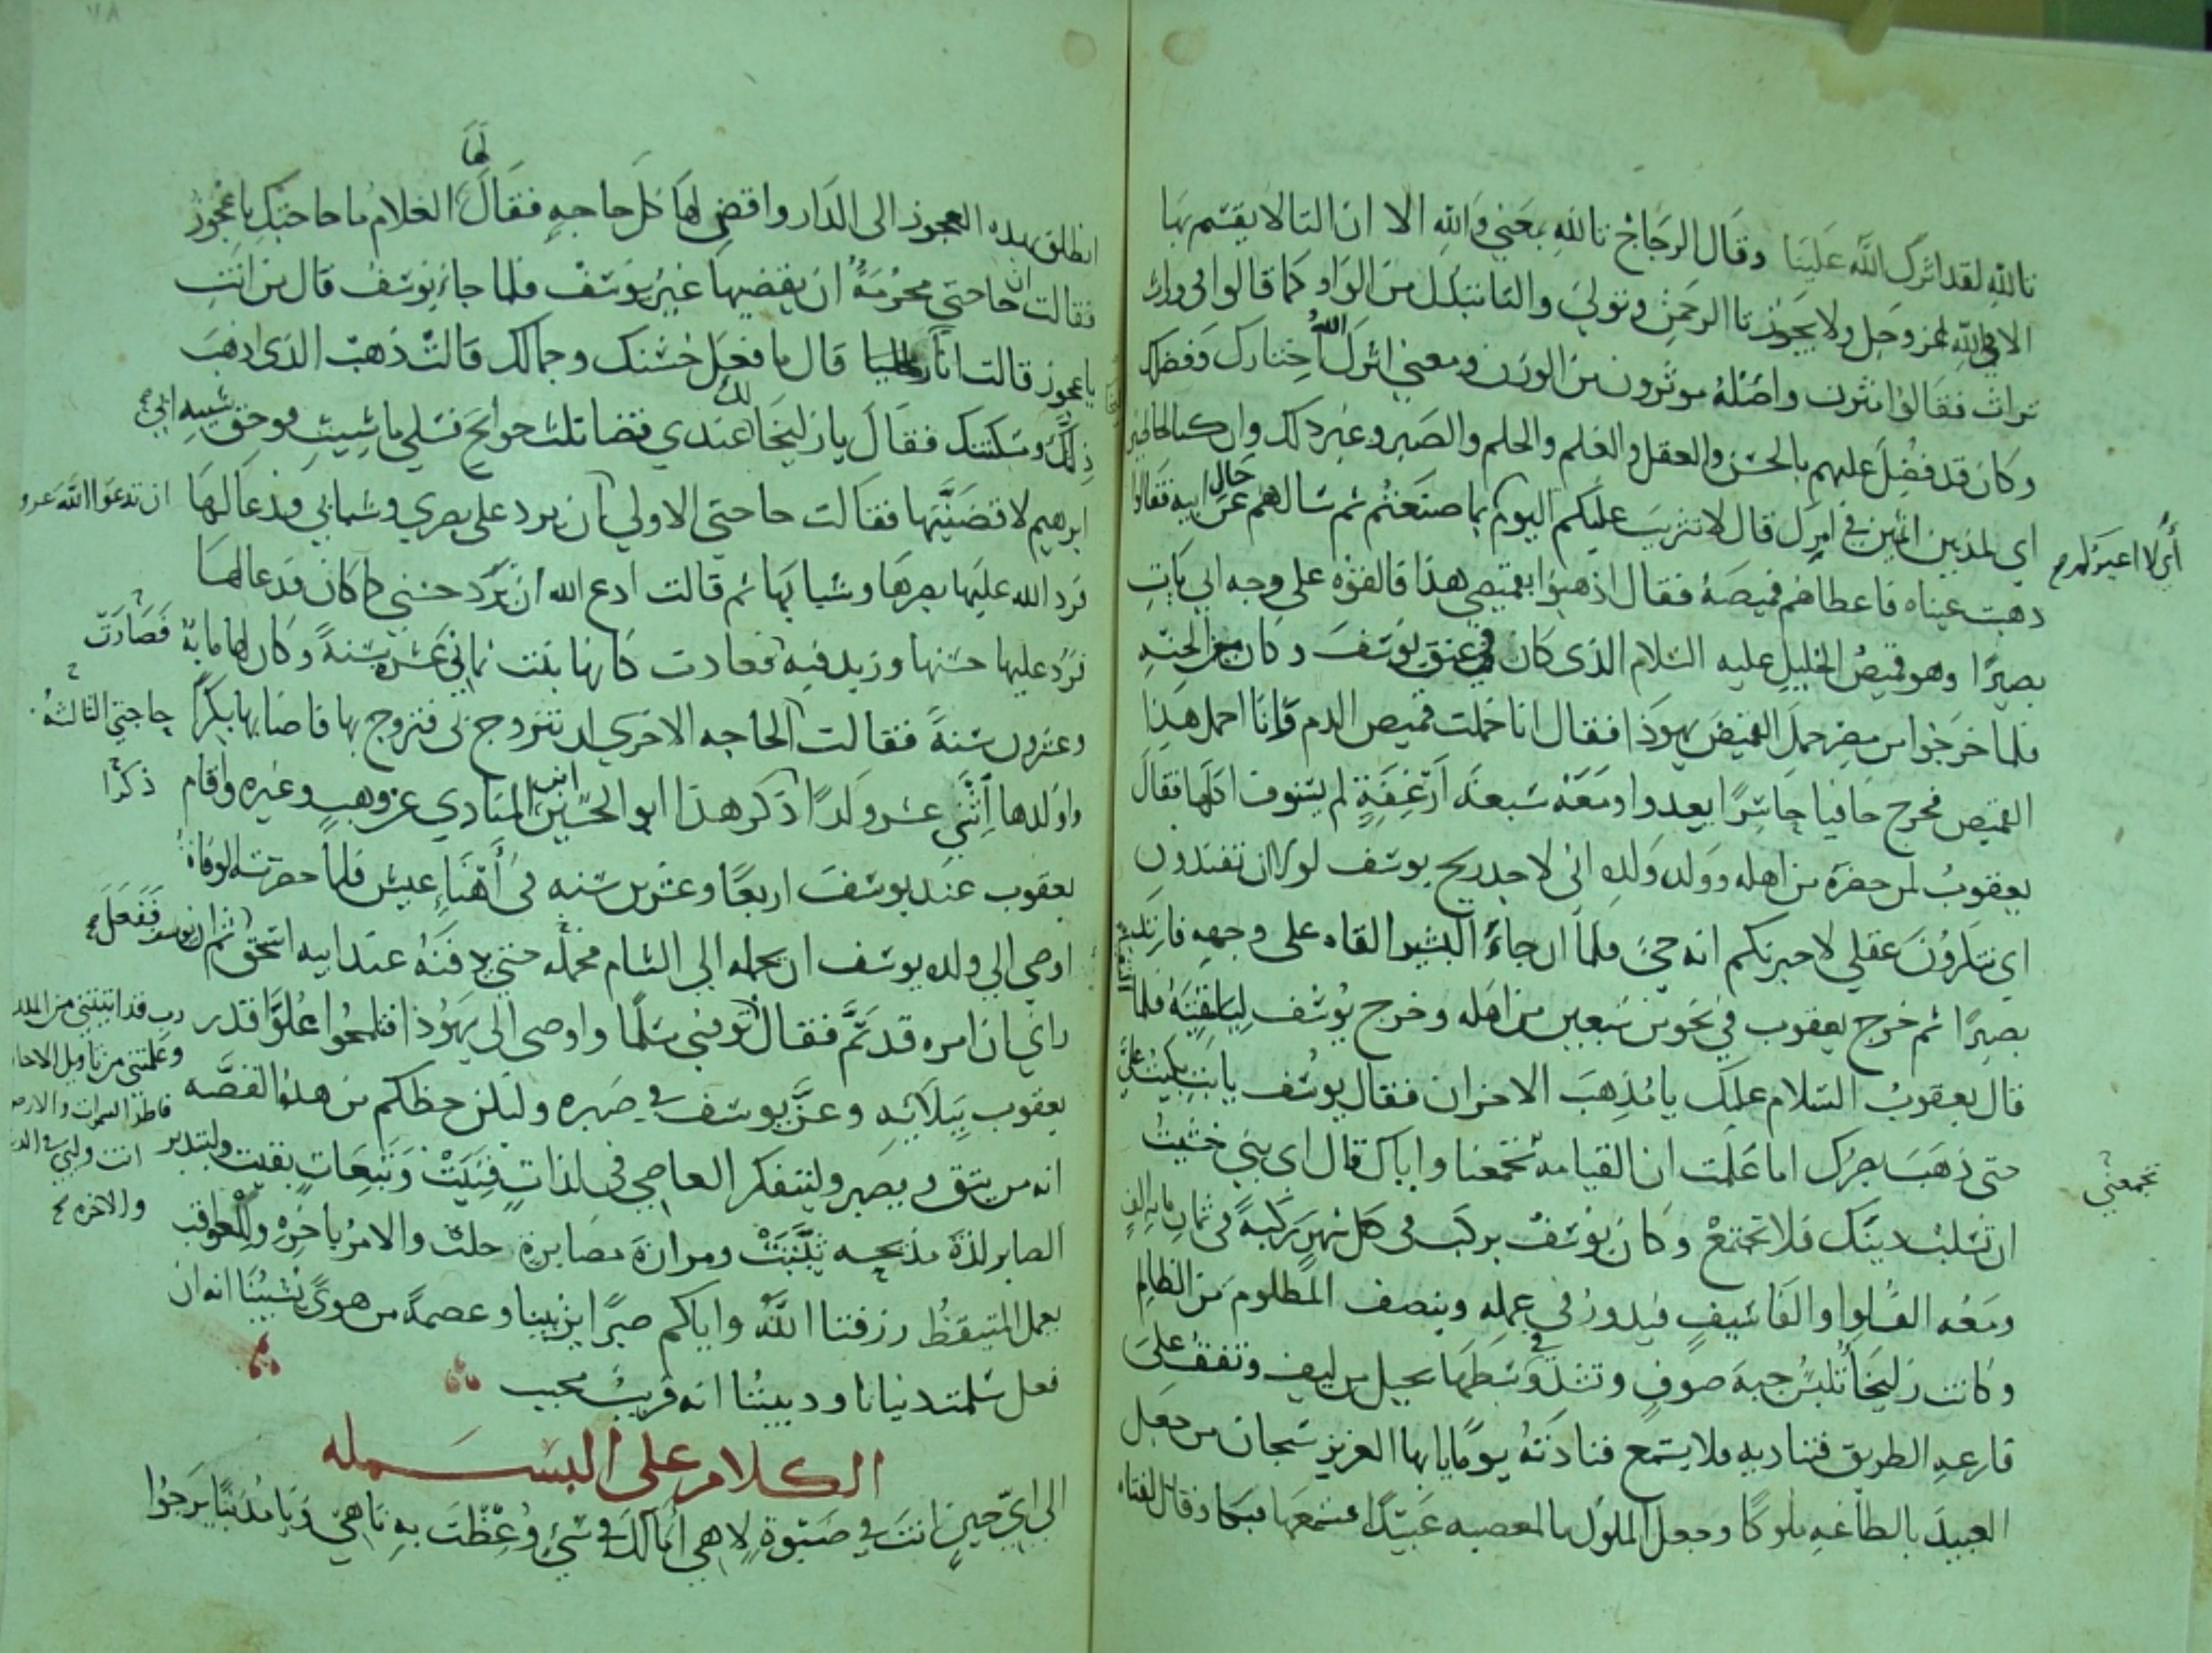 تالله لقد اثرك الله علينا وقال الزجاج تالله بمعني والله الا ان التا لا يقسم بها
الا في الله عز وجل ولا يجوز تا الرحمن وتربي والتا تبدل من الواو كما قالوا في وراث
تراث فقالوا واصله موثرون من الوزن ومعني اثرك الله اختارك وفضلك
وكان قد فضل عليهم بالحسن والعقل والعلم والحلم والصبر وغير ذلك وان كنا لخاطين
اي لمذنبين اثمين في امرك قال لا تثريب عليكم اليوم بما صنعتم ثم سالهم عن حال ابيه فقالوا
اي لا اعيركم
ذهبت عيناه فاعطاهم قميصه فقال اذهبوا بقميصي هذا فالقوه على وجه ابي يات
بصيرا وهو قميص الخليل عليه السلام الذي كان في عنق يوسف وكان من الجنه
فلما خرجوا من مصر حمل القميص يهوذا فقال انا حملت قميص الدم وانا احمل هذا
القميص فخرج حافيا حاسرا يعدوا ومعه سبعة ارغفة لم يستوف اكلها فقال
يعقوب لمن حضره من اهله وولد ولده اني لاجد ريح يوسف لولا ان تفندون
اي تنكرون عقلي لاخبرتكم انه حي فلما ان جاء البشير القاه على وجهه فارتد
بصيرا ثم خرج يعقوب في نحو من سبعين من اهله وخرج يوسف ليلقيه فلما
قال يعقوب السلام عليك يا مذهب الاحزان فقال يوسف يا ابت بكيت علي
حتى ذهب بصرك اما علمت ان القيامه تجمعنا واياك قال اي بني خشيت
تجمعني
ان تسلب دينك فلا نجتمع وكان يوسف يركب في كل شهر ركبة في ثمان مايه الف
ومعه فيدور في عمله وينصف المظلوم من الظالم
وكانت زليخا تلبس جبة صوف وتشد وسطها بحبل من ليف وتقف على
قارعه الطريق فتناديه فلا يسمع فنادته يوما يا ايها العزيز سبحان من جعل
العبيد بالطاعه ملوكا وجعل الملوك بالمعصيه عبيدا فسمعها فبكا وقال لفتاه
انطلق بهذه العجوز الى الدار واقض لها كل حاجه فقال لها الغلام ما حاجتك يا عجوز
فقالت ان حاجتي محرمة ان يقضيها غير يوسف فلما جاء يوسف قال من انت
يا عجوز قالت انا زليخا قال ما فعل حسنك وجمالك قالت ذهب الذي اذهب
ذلك ومسكنتك فقال يا زليخا لك عندي قضا ثلث حوايج فسلي ما شيت فوحق شيبه ابي
ابرهيم لا قضيتها فقالت حاجتي الاولي ان تدعوا الله ان يرد على بصري وشبابي فدعا لها
فرد الله عليها بصرها وشبابها ثم قالت ادع الله ان يرد حسني كما كان فدعا لها
فرد عليها حسنها وزيد فيه فصارت كانها بنت ثماني عشره سنة وكان لها مايه
وعشرون سنة فقالت حاجتي الثالثه الحاجه الاخري ان تتزوج بي فتزوج بها فاصابها بكرا
واولدها اثني عشر ولدا ذكرا ذكر هذا ابو الحسين ابن المنادي عن وهب وغيره واقام
يعقوب عند يوسف اربعا وعشرين سنه في اهنا عيش فلما حضرته الوفاة
اوصي الي ولده يوسف ان يحمله الي الشام فحمله حتي دفنه عند ابيه اسحق ففعل ثم ان يوسف
راي ان امره قد تم فقال توفني مسلما واوصى الي يهوذا فتلمحوا علو قدر
رب قد اتيتني من الملك
وعلمتني من تاويل الاحا
فاطر السموات والارض
انت وليي في الد
والاخره
يعقوب ببلايه وعز يوسف في صبره وليكن حظكم من هذه القصه
انه من يتق ويصبر وليتفكر العاصي في لذات فنيت وتبعات بقيت وليتدبر
الصابر لذة مديحه ثبتت ومرارة مصابرة خلت والامر باخره وللعواقب
يعمل المتيقظ رزقنا الله واياكم صبرا يزيننا وعصمة من هوى يشيننا انه ان
فعل سلمت دنيانا وديننا انه قريب مجيب
الكلام على البسمله
الى اي حين انت في صبوة لاهي امالك في شيء وعظت به ناهي ويا مذنبا يرجوا